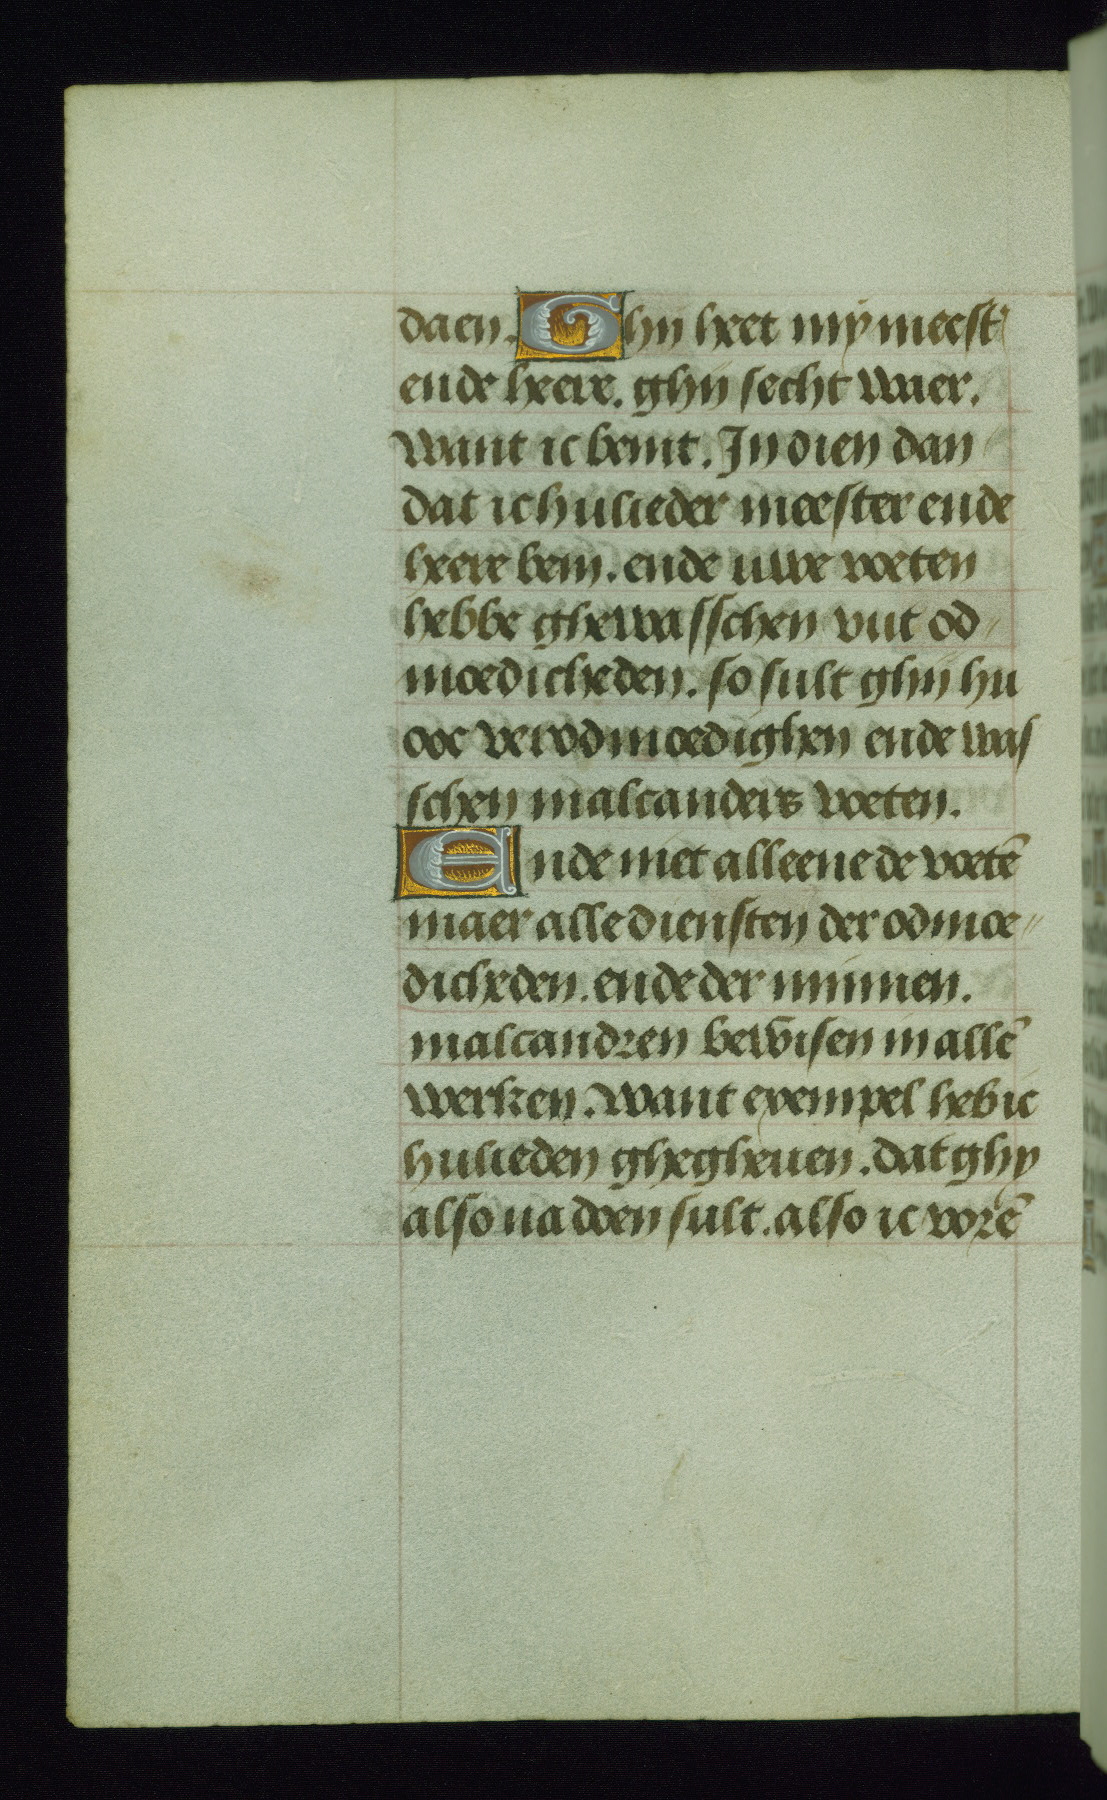 daen. Ghij heet mij meest᾽
ende heere. ghij secht waer.
want ic bemt. In dien dan
dat ic hulieder meester ende
heere bem. ende uwe voeten
hebbe ghewasschen vut od〃
moedicheden. so sult ghij hu
ooc verodmoedighen ende was
schen malcanders voeten.
Ende niet alleene de voetē
maer alle diensten der odmoe〃
dicheden. ende der minnen.
malcandren bewisen in allē
werken. want exempel heb ic
hulieden ghegheuen. dat ghy
also na doen sult. also ic vorē